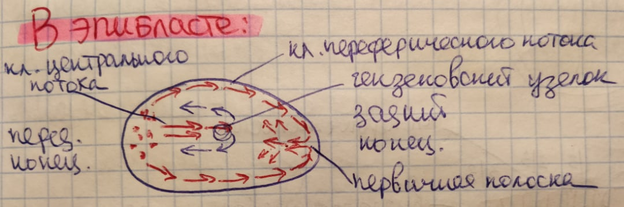 В эпибласте:
кл. центрального
потока
кл. переферического потока
гензеновский узелок
задний
конец.
перед.
конец.
первичная полоска